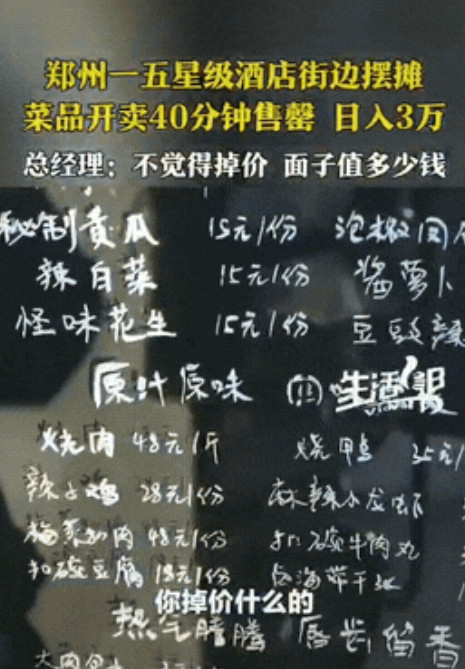 郑州一五星级酒店街边摆摊
菜品开卖40分钟售罄 日入3万
总经理：不觉得掉价 面子值多少钱
秘制黄瓜 15元/份 泡椒凤
辣白菜 15元/份 酱萝卜
怪味花生 15元/份 豆豉辣
原汁原味 生活
烧肉 48元/斤 烧鸭 35元/
辣子鸡 28元/份 麻辣小龙虾
梅菜扣肉 48元/份 牛肉丸
扣碗豆腐 18元/份 海带
你掉价什么的
热气腾腾 唇齿留香
大肉包